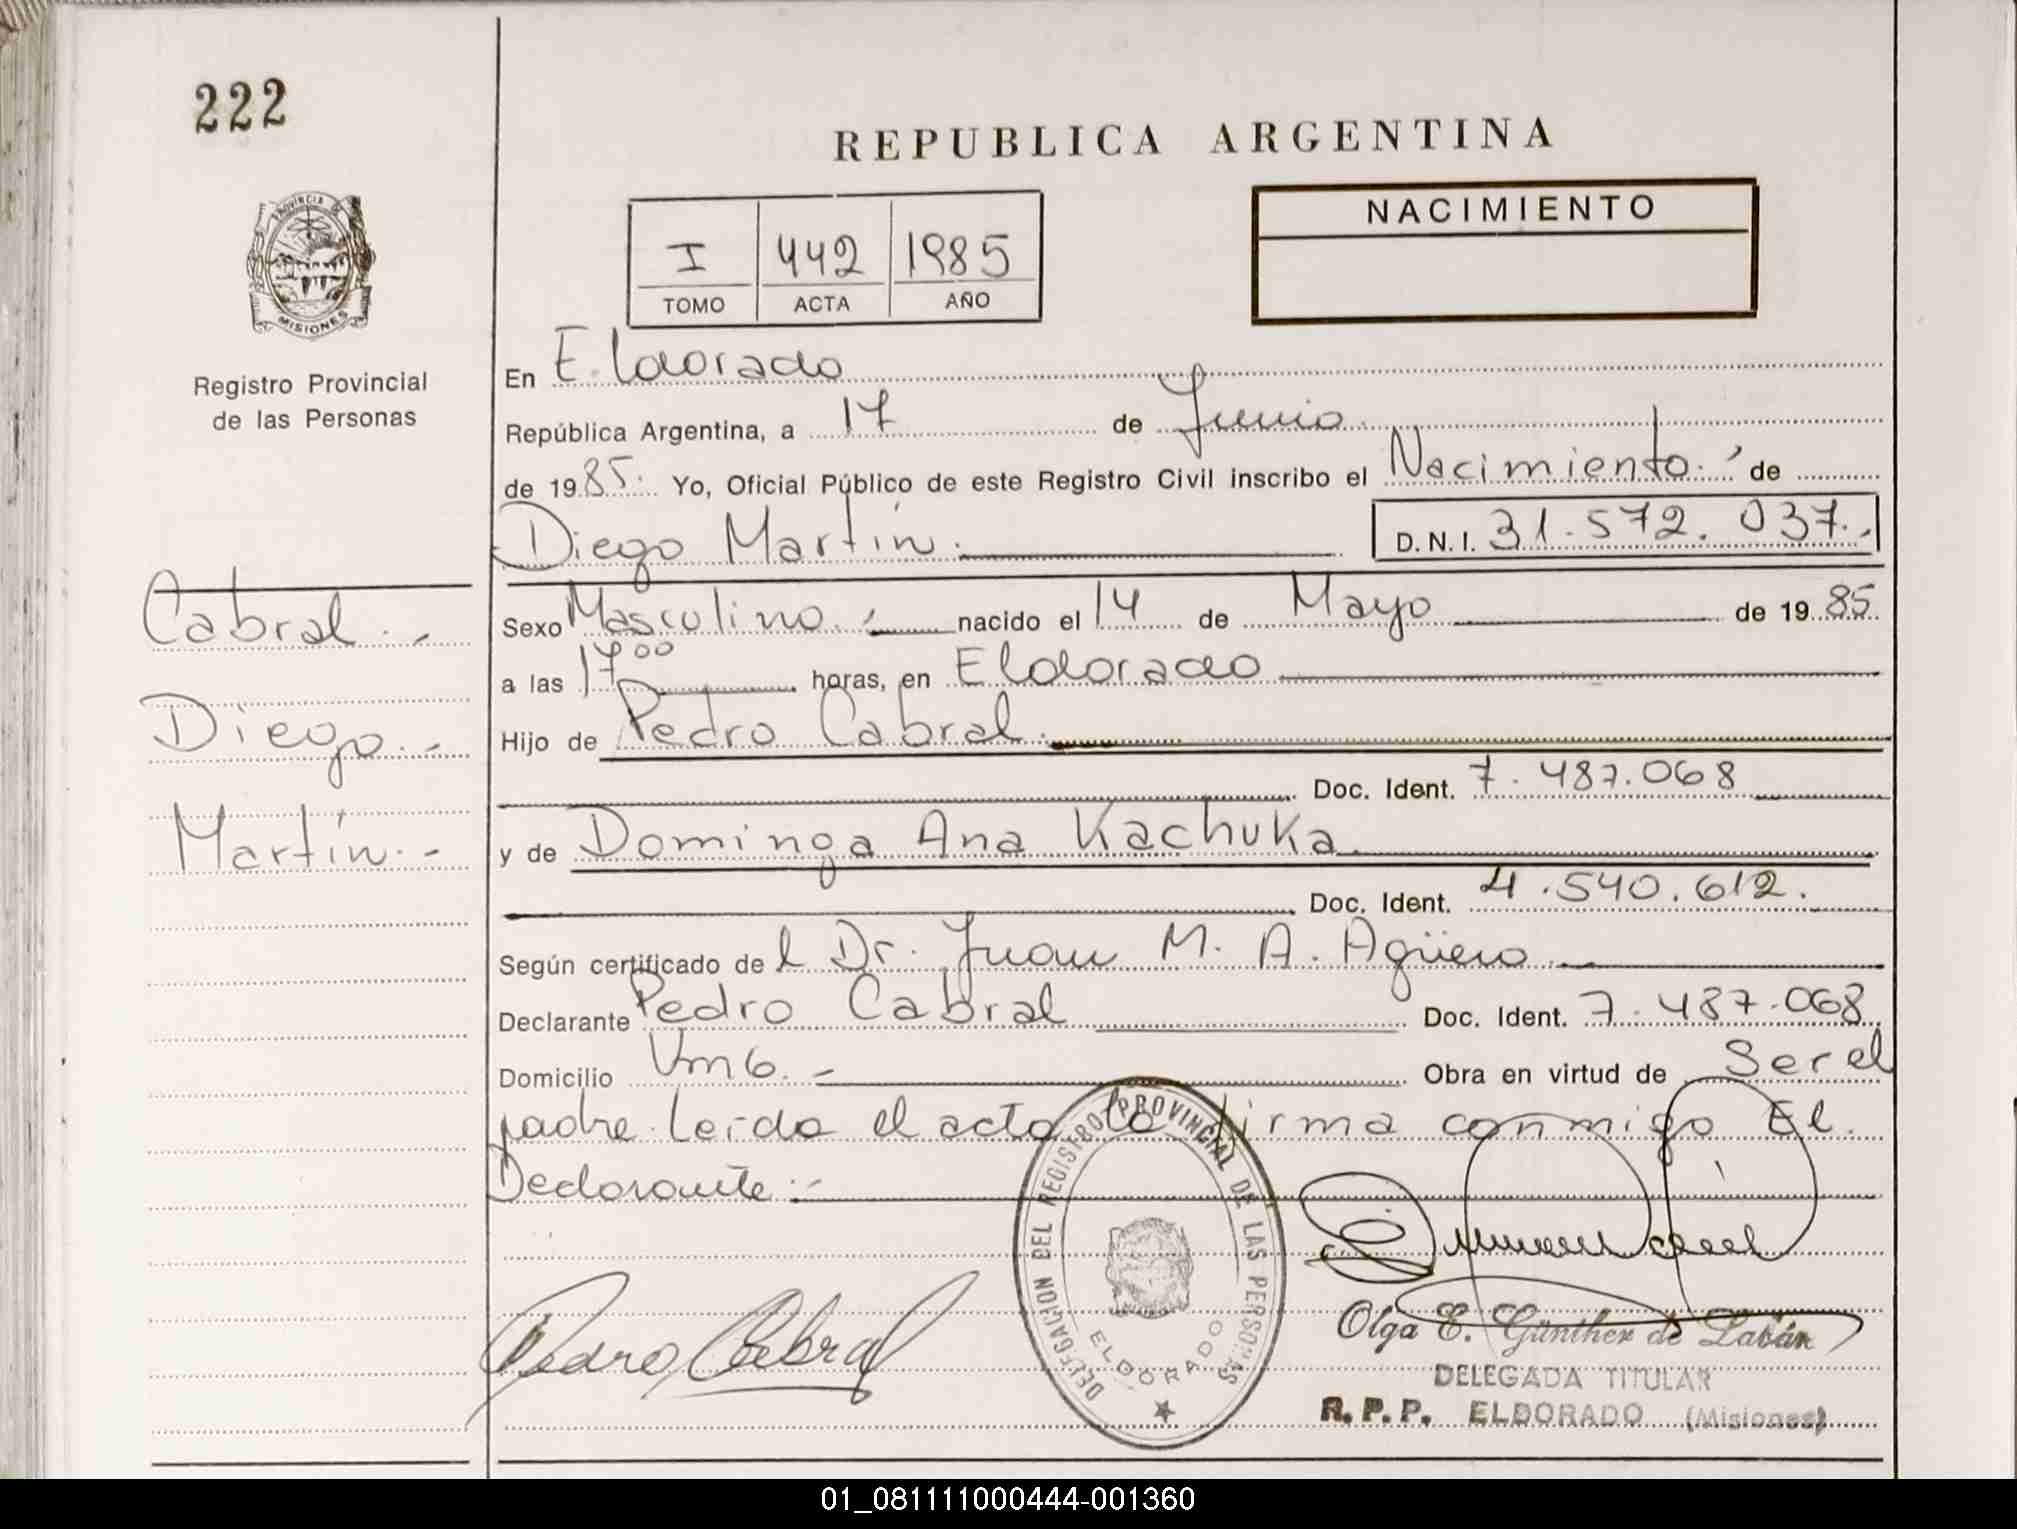 222
REPUBLICA ARGENTINA
PROVINCIA DE
MISIONES
I 442 1985
TOMO ACTA AÑO
NACIMIENTO
Registro Provincial
de las Personas
En Eldorado
República Argentina, a 17 de Junio
de 1985. Yo, Oficial Público de este Registro Civil inscribo el Nacimiento. de
Diego Martín. D.N.I. 31.572.037.
Cabral.-
Diego.-
Martín.-
Sexo Masculino.- nacido el 14 de Mayo de 1985
a las 17 00 horas, en Eldorado
Hijo de Pedro Cabral.
Doc. Ident. 7.487.068
y de Dominga Ana Kachuka
Doc. Ident. 4.540.612.
Según certificado del Dr. Juan M. A. Agüero
Declarante Pedro Cabral Doc. Ident. 7.487.068
Domicilio Km 6.- Obra en virtud de Ser el
padre. Leída el acta la firma conmigo El.
Declarante:-
DELEGACION DEL REGISTRO PROVINCIAL DE LAS PERSONAS
ELDORADO
Pedro Cabral
Olga E. Günther de Labán
DELEGADA TITULAR
R.P.P. ELDORADO (Misiones)
01_081111000444-001360